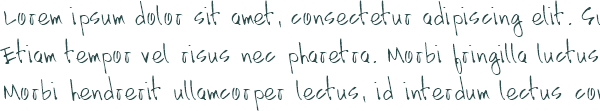 Lorem ipsum dolor sit amet, consectetur adipiscing elit. S
Etiam tempor vel risus nec pharetra. Morbi fringilla luctus
Morbi hendrerit ullamcorper lectus, id interdum lectus co